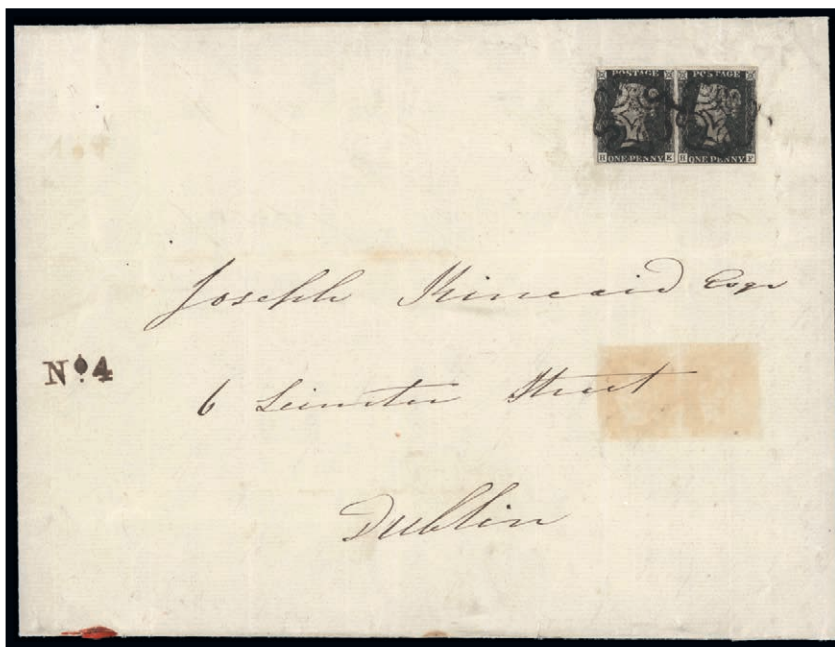 POSTAGE POSTAGE
H E H F
ONE PENNY. ONE PENNY.
Joseph Kincaid Esqr
No. 4
6 Leinster Street
Dublin